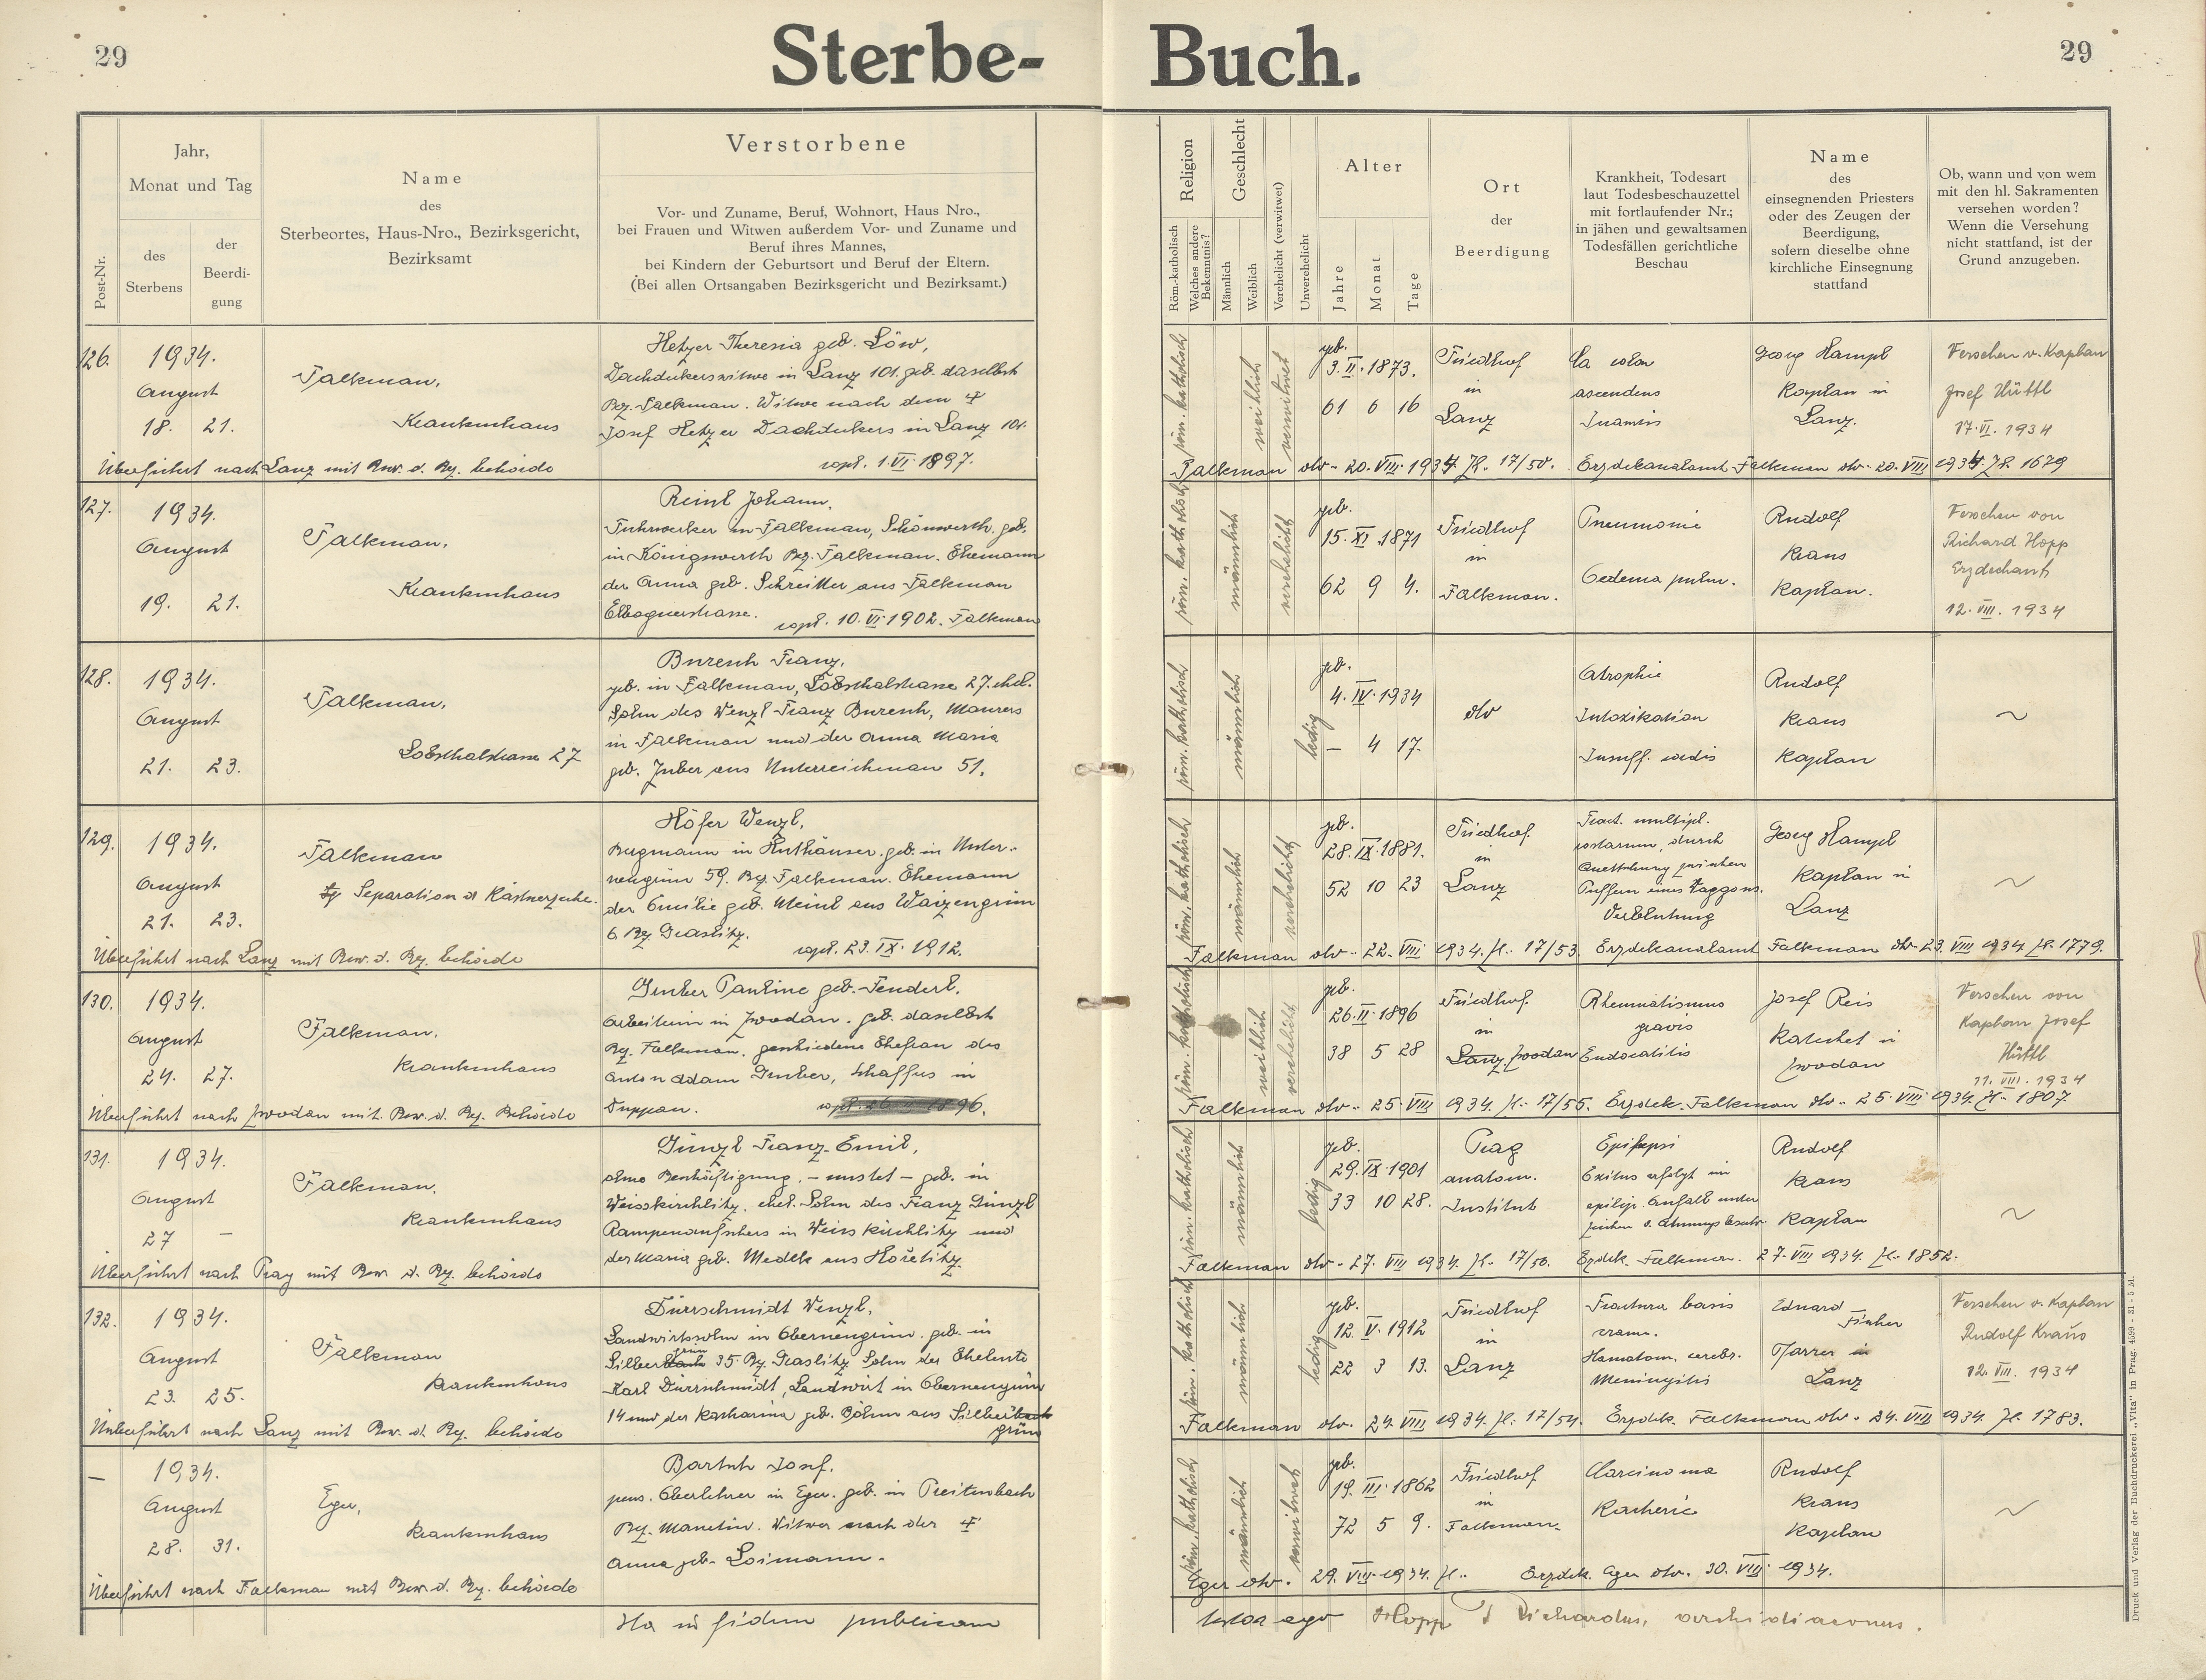 29
Sterbe-
Buch.
29
Post-Nr.
Jahr,
Monat und Tag
des
Sterbens
der
Beerdi-
gung
Name
des
Sterbeortes, Haus-Nro., Bezirksgericht,
Bezirksamt
Verstorbene
Vor- und Zuname, Beruf, Wohnort, Haus Nro.,
bei Frauen und Witwen außerdem Vor- und Zuname und
Beruf ihres Mannes,
bei Kindern der Geburtsort und Beruf der Eltern.
(Bei allen Ortsangaben Bezirksgericht und Bezirksamt.)
Religion
Röm.-katholisch
Welches andere
Bekenntnis?
Geschlecht
Männlich
Weiblich
Verehelicht (verwitwet)
Unverehelicht
Alter
Jahre
Monat
Tage
Ort
der
Beerdigung
Krankheit, Todesart
laut Todesbeschauzettel
mit fortlaufender Nr.;
in jähen und gewaltsamen
Todesfällen gerichtliche
Beschau
Name
des
einsegnenden Priesters
oder des Zeugen der
Beerdigung,
sofern dieselbe ohne
kirchliche Einsegnung
stattfand
Ob, wann und von wem
mit den hl. Sakramenten
versehen worden?
Wenn die Versehung
nicht stattfand, ist der
Grund anzugeben.
126.
1934.
August
18. 21.
Falkenau,
Krankenhaus
Hetzer Theresia geb. Löw,
Dachdeckerswitwe in Lanz 101. geb. daselbst
Bez. Falkenau. Witwe nach dem
Josef Hetzer Dachdeckers in Lanz 101.
copul. 1. VI. 1897.
Überführt nach Lanz mit Bew. d. Bez. behörde
röm. katholisch
weiblich
verwitwet
geb.
3. II. 1873.
61 6 16
Friedhof
in
Lanz
Ca colon
ascendens
Georg Hampl
Kaplan in
Lanz.
Versehen v. Kaplan
Josef Hüttl
17. VI. 1934
Falkenau dto - 20. VIII. 1934 Zl. 17/50. Erzdekanalamt Falkenau dto - 20. VIII 1934. Zl. 1679
127.
1934.
August
19. 21.
Falkenau,
Krankenhaus
Reinl Johann.
Fuhrwerker in Falkenau, Schönwerth. geb.
in Königswerth Bez. Falkenau. Ehemann
der Anna geb. Schreitter aus Falkenau
Elbognerstrasse. copul. 10. VI 1902. Falkenau
röm. katholisch
männlich
verehelicht
geb.
15. XI. 1871
62 9 4.
Friedhof
in
Falkenau.
Pneumonie
Oedema pulm.
Rudolf
Kraus
Kaplan.
Versehen von
Richard Hopp
Erzdechant
12. VIII. 1934
128.
1934.
August
21. 23.
Falkenau,
Lobsthalstrasse 27
Buresch Franz,
geb. in Falkenau, Lobsthalstrasse 27. ehel.
Sohn des Wenzl Franz Buresch, Maurers
in Falkenau und der Anna Maria
geb. Juber aus Unterreichenau 51.
röm. katholisch
männlich
ledig
geb.
4. IV. 1934
— 4 17.
dto
Atrophie
Intoxikation
Insuff. cordis
Rudolf
Kraus
Kaplan
~
129.
1934.
August
21. 23.
Falkenau
Separation d. Kästnerzeche.
Höfer Wenzl,
Bergmann in Huthäuser. geb. in Unter-
neugrün 59. Bez. Falkenau. Ehemann
der Emilie geb. Meinl aus Waizengrün
6. Bez. Graslitz.
copul. 23. IX. 1912.
Überführt nach Lanz mit Bew. d. Bez. behörde
röm. katholisch
männlich
verehelicht
geb.
28. IX. 1881.
52 10 23
Friedhof.
in
Lanz
Fract. multipl.
costarum, durch
Quetschung zwischen
Puffern eines Waggons.
Verblutung
Georg Hampl
Kaplan in
Lanz
~
Falkenau dto - 22. VIII 1934. Zl. 17/53. Erzdekanalamt Falkenau dto - 23. VIII 1934. Zl. 1779.
130.
1934.
August
24. 27.
Falkenau,
Krankenhaus
Gruber Pauline geb. Fenderl.
Arbeiterin in Zwodau. geb. daselbst
Bez. Falkenau. geschiedene Ehefrau des
Anton Adam Gruber, Schaffers in
Duppau.
Überführt nach Zwodau mit Bew. d. Bez. Behörde
röm. katholisch
weiblich
verehelicht
geb.
26. II. 1896
38 5 28
Friedhof.
in
Lanz Zwodau
Rheumatismus
gravis
Endocatitis
Josef Reis
Katechet in
Zwodau
Versehen von
Kaplan Josef
Hüttl
11. VIII. 1934
Falkenau dto - 25. VIII 1934. Zl. 17/55. Erzdek. Falkenau dto - 25. VIII 1934. Zl. 1807.
131.
1934.
August
27 —
Falkenau.
Krankenhaus
Günzl Franz-Emil,
ohne Beschäftigung, - unstet - geb. in
Weisskirchlitz. ehel. Sohn des Franz Günzl
Rampenaufsehers in Weisskirchlitz und
der Maria geb. Medek aus Hořelitz.
Überführt nach Prag mit Bew. d. Bez. behörde
röm. katholisch
männlich
ledig
geb.
29. IX. 1901
33 10 28.
Prag
anatom.
Institut
Epilepsi
Exitus erfolgt im
epilep. Anfall unter
Zeichen d. Atmungsbeschr.
Rudolf
Kraus
Kaplan
~
Falkenau dto - 27. VIII 1934. Zl. 17/56. Erzdek. Falkenau. 27. VIII 1934. Zl. 1852.
132.
1934.
August
23. 25.
Falkenau
Krankenhaus
Dürrschmidt Wenzl,
Landwirtssohn in Oberneugrün. geb. in
Silberbach grün 35. Bez. Graslitz Sohn der Eheleute
Karl Dürrschmidt, Landwirt in Oberneugrün
14 und der Katharina geb. Böhm aus Silberbach
grün
Überführt nach Lanz mit Bew. d. Bez. behörde
röm. katholisch
männlich
ledig
geb.
12. V. 1912
22 3 13.
Friedhof
in
Lanz
Fractura basis
cranii.
Hämatom. cerebr.
Meningitis
Eduard
Fischer
Pfarrer in
Lanz
Versehen v. Kaplan
Rudolf Kraus
12. VIII. 1934
Falkenau dto. 24. VIII 1934. Zl. 17/54. Erzdek. Falkenau dto - 24. VIII 1934. Zl. 1783.
—
1934.
August
28. 31.
Eger,
Krankenhaus
Bartsch Josef.
pens. Oberlehrer in Eger. geb. in Preitenbach
Bez. Manetin. Witwer nach der
Anna geb. Loimann.
Überführt nach Falkenau mit Bew. d. Bez. behörde
röm. katholisch
männlich
verwitwet
geb.
19. III. 1862
72 5 9.
Friedhof
in
Falkenau.
Carcinoma
Kacherie
Rudolf
Kraus
Kaplan
~
Eger dto. 29. VIII. 1934. Zl. Erzdek. Eger dto. 30. VIII. 1934.
Ita in fidem publicam
testor ego Hopp Richardus, archidiaconus.
Druck und Verlag der Buchdruckerei „Vita" in Prag. 4599 - 31 - 5 M.